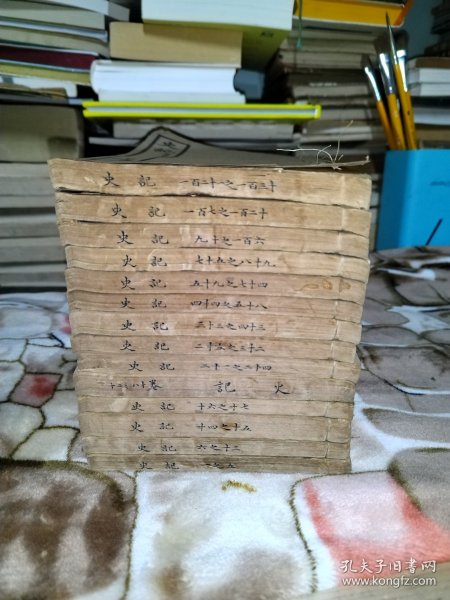 史記 一百二十一之一百三十
史記 一百七之一百二十
史記 九十之一百六
史記 七十九之八十九
史記 五十九之七十四
史記 四十四之五十八
史記 三十三之四十三
史記 二十五之三十二
史記 二十一之二十四
史記
史記 十六之十七
史記 十四之十五
史記 六之十三
史記 一之五
孔夫子旧书网
www.kongfz.com